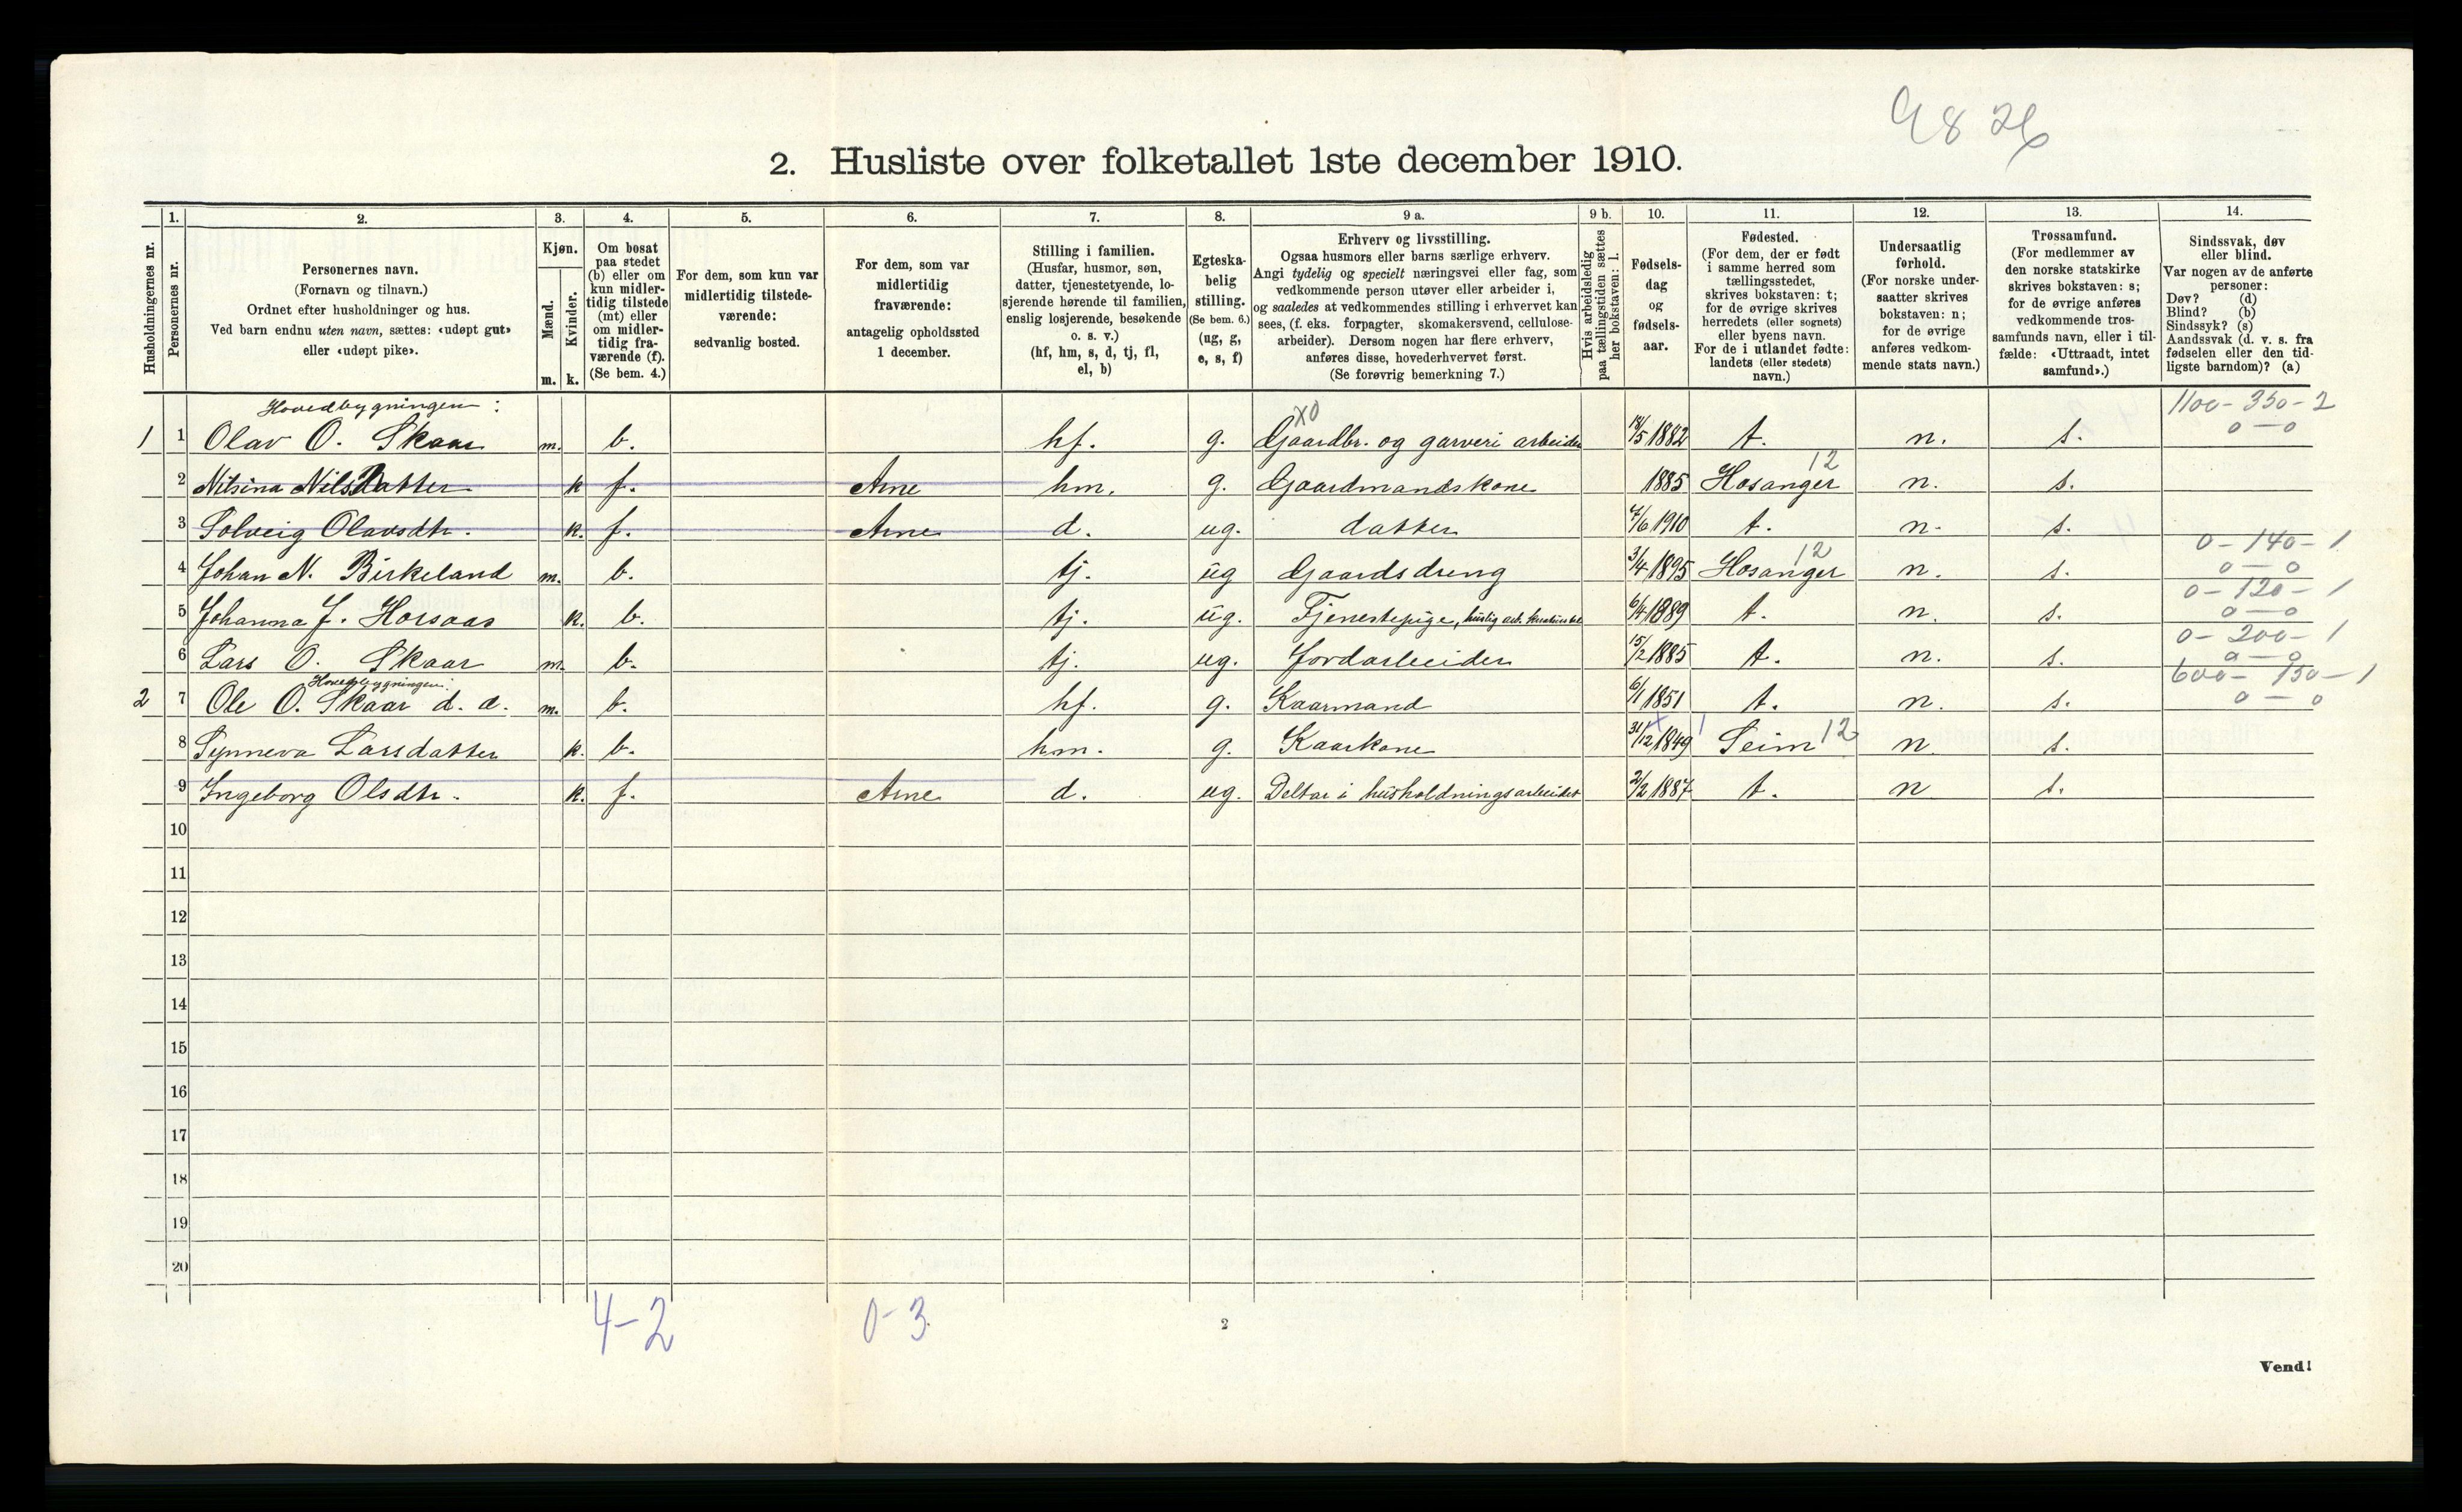 9826
2. Husliste over folketallet 1ste december 1910.
Husholdningernes nr.
1.
Personernes nr.
2.
Personernes navn.
(Fornavn og tilnavn.)
Ordnet efter husholdninger og hus.
Ved barn endnu uten navn, sættes: «udøpt gut»
eller «udøpt pike».
3.
Kjøn.
Mænd.
Kvinder.
m. k.
4.
Om bosat
paa stedet
(b) eller om
kun midler-
tidig tilstede
(mt) eller
om midler-
tidig fra-
værende (f).
(Se bem. 4.)
5.
For dem, som kun var
midlertidig tilstede-
værende:
sedvanlig bosted.
6.
For dem, som var
midlertidig
fraværende:
antagelig opholdssted
1 december.
7.
Stilling i familien.
(Husfar, husmor, søn,
datter, tjenestetyende, lo-
sjerende hørende til familien,
enslig losjerende, besøkende
o. s. v.)
(hf, hm, s, d, tj, fl,
el, b)
8.
Egteska-
belig
stilling.
(Se bem. 6.)
(ug, g,
e, s, f)
9 a.
Erhverv og livsstilling.
Ogsaa husmors eller barns særlige erhverv.
Angi tydelig og specielt næringsvei eller fag, som
vedkommende person utøver eller arbeider i,
og saaledes at vedkommendes stilling i erhvervet kan
sees, (f. eks. forpagter, skomakersvend, cellulose-
arbeider). Dersom nogen har flere erhverv,
anføres disse, hovederhvervet først.
(Se forøvrig bemerkning 7.)
9 b.
Hvis arbeidsledig
paa tællingstiden sættes
her bokstaven: l.
10.
Fødsels-
dag
og
fødsels-
aar.
11.
Fødested.
(For dem, der er født
i samme herred som
tællingsstedet,
skrives bokstaven: t;
for de øvrige skrives
herredets (eller sognets)
eller byens navn.
For de i utlandet fødte:
landets (eller stedets)
navn.)
12.
Undersaatlig
forhold.
(For norske under-
saatter skrives
bokstaven: n;
for de øvrige
anføres vedkom-
mende stats navn.)
13.
Trossamfund.
(For medlemmer av
den norske statskirke
skrives bokstaven: s;
for de øvrige anføres
vedkommende tros-
samfunds navn, eller i til-
fælde: «Uttraadt, intet
samfund».)
14.
Sindssvak, døv
eller blind.
Var nogen av de anførte
personer:
Døv? (d)
Blind? (b)
Sindssyk? (s)
Aandssvak (d. v. s. fra
fødselen eller den tid-
ligste barndom)? (a)
Hovedbygningen: X0 1100-350-2
1 1 Olav O. Skaar m. b. hf. g. Gaardbr. og garveri arbeider 18/5 1882 t. n. s. 0-0
2 Nilsina Nilsdatter k f. Arne hm. g. Gaardmandskone 1885 Hosanger 12 n. s.
3 Solveig Olavsdtr. k. f. Arne d. ug. datter 7/6 1910 t. n. s.
4 Johan N. Birkeland m. b. tj. ug Gaardsdreng 3/4 1895 Hosanger 12 n. s. 0-140-1 0-0
5 Johanna J. Horsaas k. b. tj. ug. Tjenestepige, huslig arb. 6/4 1889 t. n. s. 0-120-1 0-0
6 Lars O. Skaar m. b. tj. ug. Jordarbeider 15/2 1885 t. n. s. 0-200-1 0-0
Hovedbygningen:
2 7 Ole O. Skaar d. æ. m. b. hf. g. Kaarmand 6/1 1851 t. n. s. 600-150-1 0-0
8 Synneva Larsdatter k. b. hm. g. Kaarkone 31/12 1849 Seim 12 n. s.
9 Ingeborg Olsdtr. k. f. Arne d. ug. Deltar i husholdningsarbeidet 2/2 1887 t. n s.
10
11
12
13
14
15
16
17
18
19
20
4-2 0-3
2
Vend!